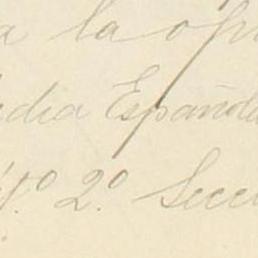 a la opi
edia Española
4º 2º Secci